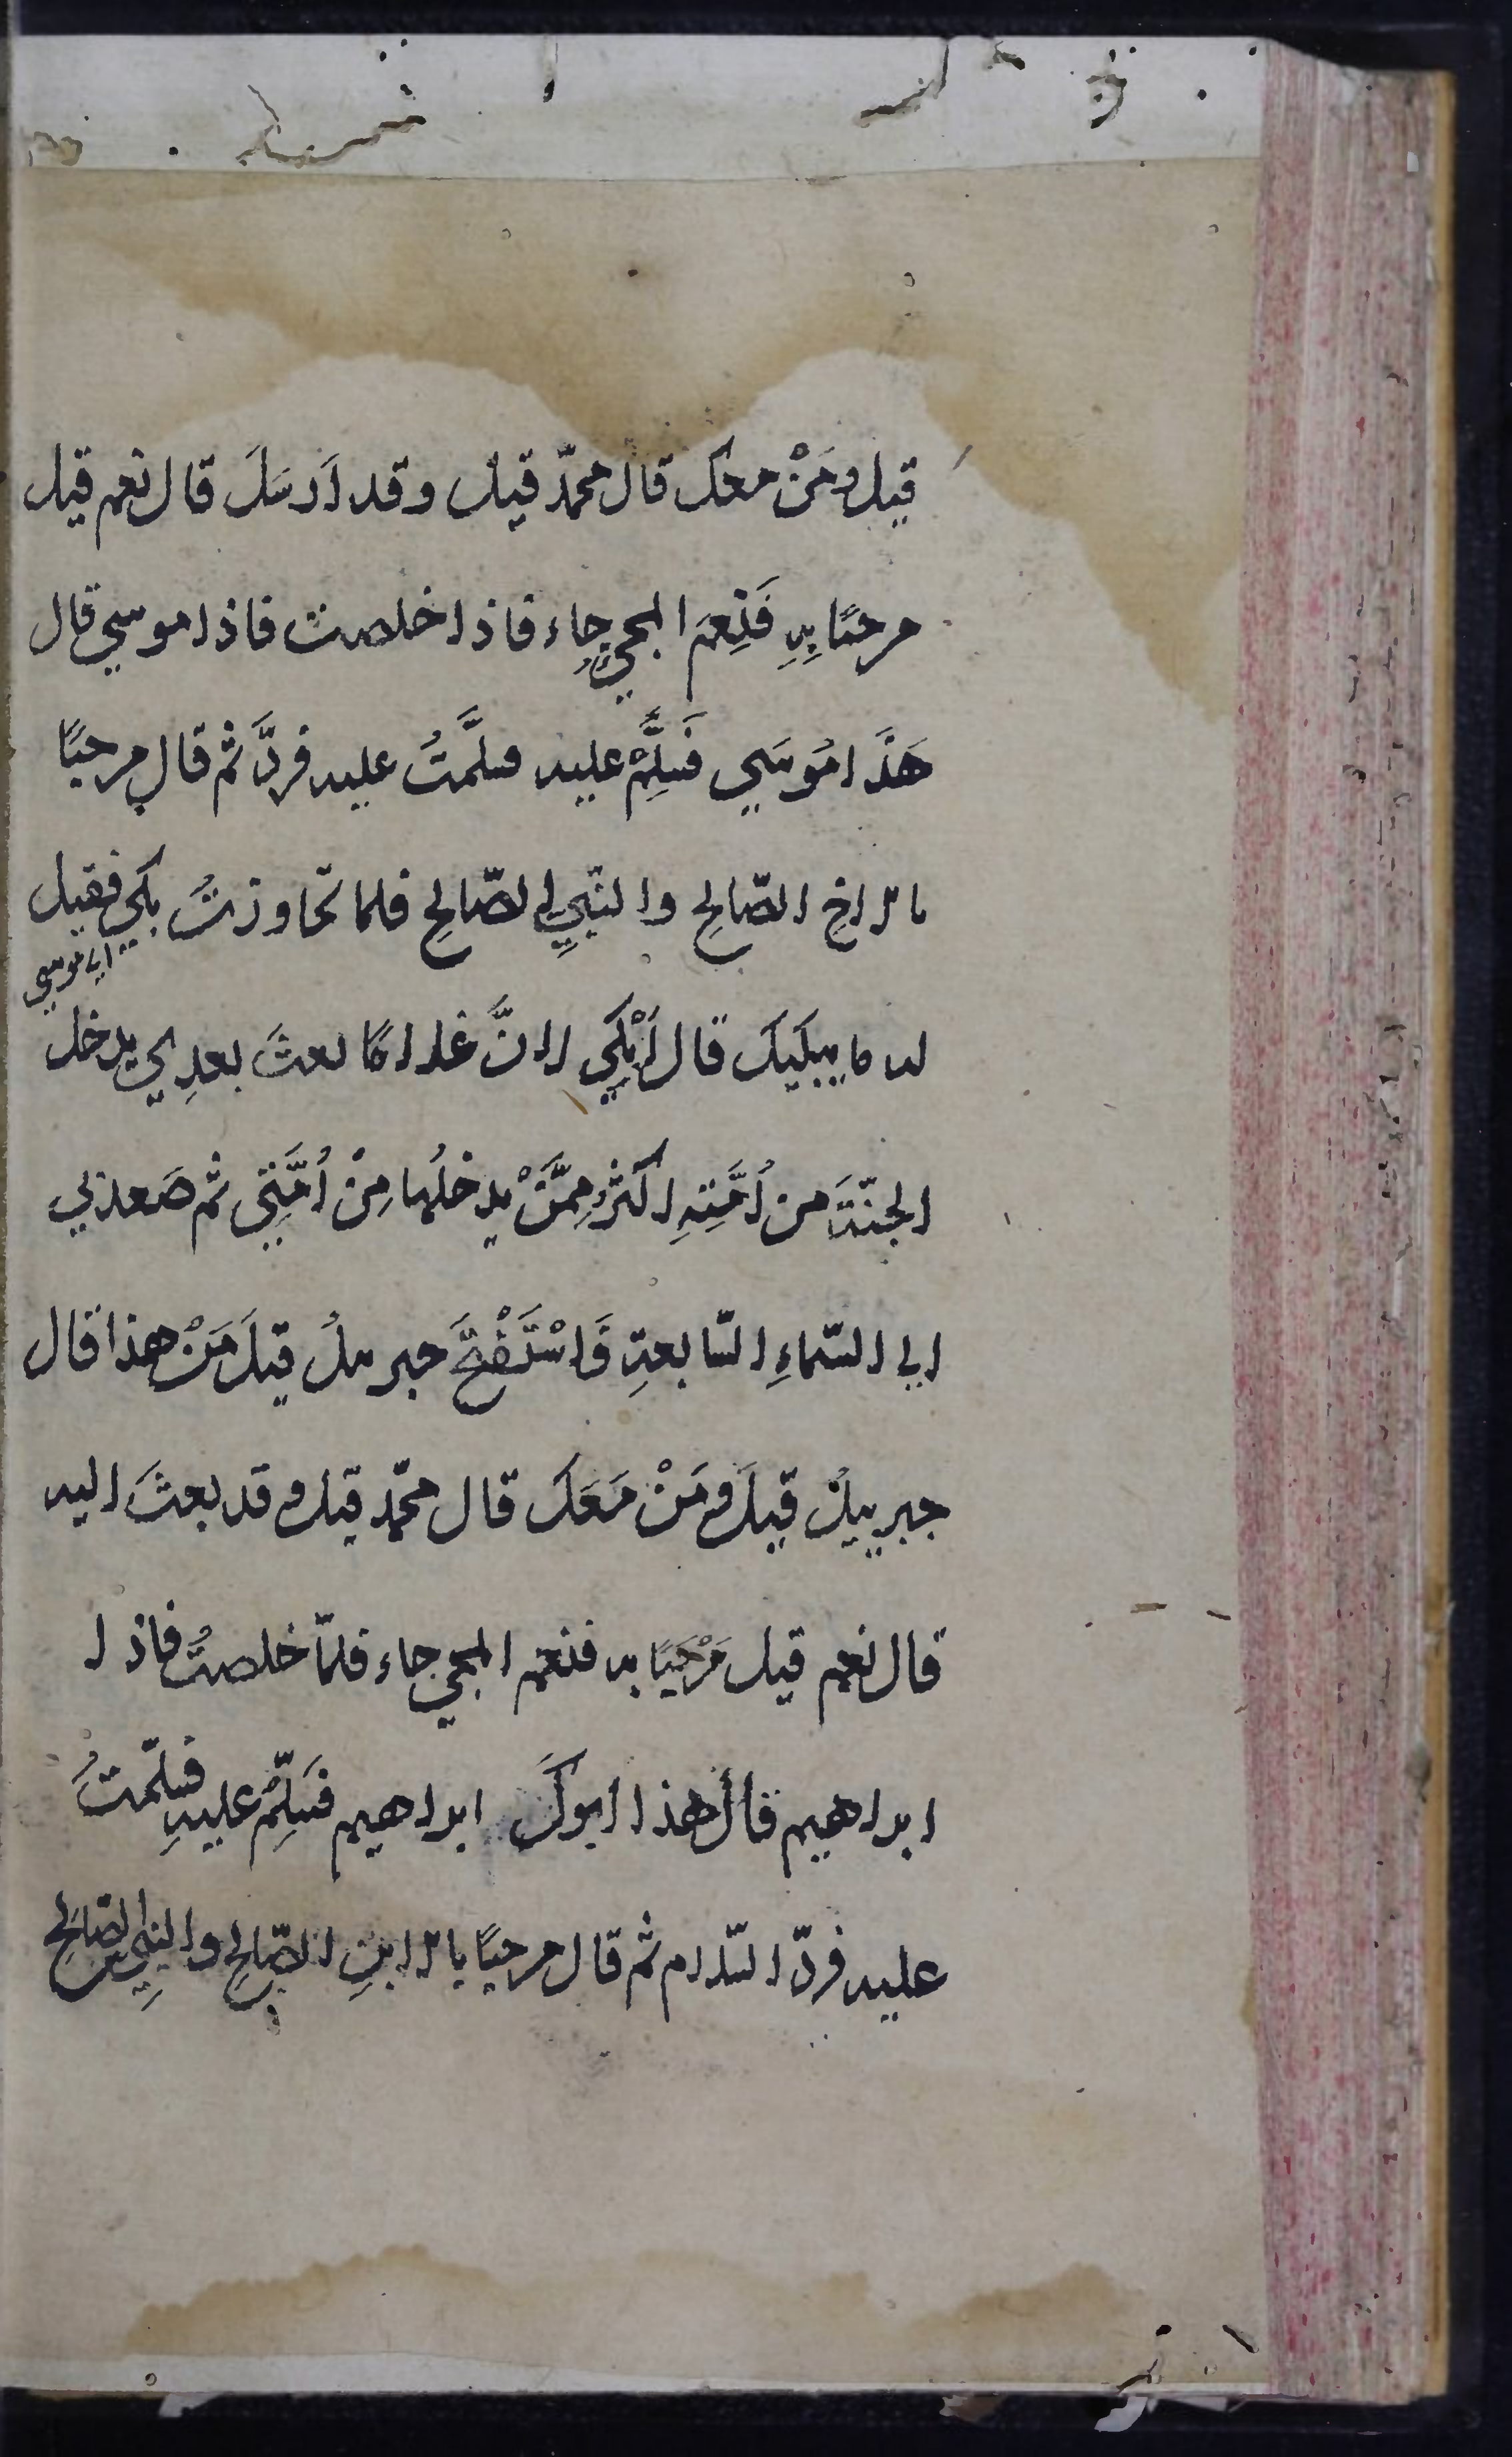 قيل ومَنْ معك قال محمّد قيل وقد اَرسَلَ قال نعم قيل
مرحبًا بِهِ فَنِعمَ المجيُ جاء فاذا خلصت فاذا موسي قال
هَذَا مُوسَي فَسَلِّمْ عليه فسلَّمتُ عليه فردَّ ثم قال مرحبًا
بالاخِ الصّالحِ والنّبيِ الصّالحِ فلما تجاوزتُ بكي فقيل
اي موسي
له ما يبكيكَ قال اَبْكي لانَّ غلامًا بعثَ بعدِي يدخل
الجنّةَ من اُمَّتِهِ اكثرُ مِمَّنْ يدخلُها مِنْ اُمَّتِي ثم صَعد بي
الي السّماءِ السّابعةِ فَاسْتَفْتَحَ جبريلُ قيلَ مَنْ هذا قال
جبرييلُ قيلَ ومَنْ مَعَكَ قال محمّد قيل وقد بعثَ اليه
قال نعم قيل مَرْحَبًا به فنعم المجي جاء فلمّا خلصتُ فاذا
ابراهيم قال هذا ابوكَ ابراهيم فَسَلِّمْ عليهِ فسلّمتُ
عليه فردّ السّلام ثم قال مرحبًا بالابنِ الصّالحِ والنبيِ الصّالحِ